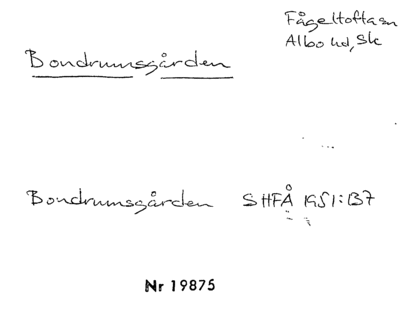 Fågeltofta sn
Albo hd, Sk
Bondrumsgården
Bondrumsgården SHFÅ 1951:B7
Nr 19875